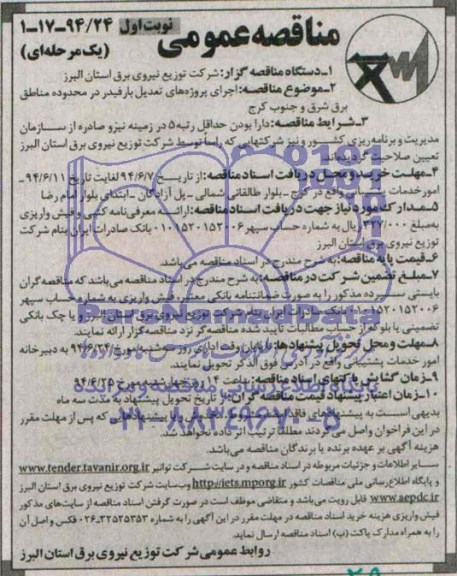 مناقصه عمومی
نوبت اول
۹۴/۲۴-۱۷-۱
(یک مرحله‌ای)
۱-دستگاه مناقصه گزار: شرکت توزیع نیروی برق استان البرز
۲-موضوع مناقصه: اجرای پروژه‌های تعدیل بار فیدر در محدوده مناطق
برق شرق و جنوب کرج
۳-شرایط مناقصه: دارا بودن حداقل رتبه ۵ در زمینه نیرو صادره از سازمان
مدیریت و برنامه ریزی کشور و نیز شرکتهایی که راساً توسط شرکت توزیع نیروی برق استان البرز
تعیین صلاحیت گردیده‌اند
۴-مهلت خرید و محل دریافت اسناد مناقصه: از تاریخ ۹۴/۶/۷ لغایت تاریخ ۹۴/۶/۱۱-
امور خدمات پشتیبانی واقع در کرج - بلوار طالقانی شمالی - پل آزادگان - ابتدای بلوار امام رضا
۵-مدارک مورد نیاز جهت دریافت اسناد مناقصه: ارائه معرفی‌نامه کتبی و فیش واریزی
به مبلغ ریال به شماره حساب سپهر ۰۱۰۱۵۲۰۱۵۲۰۰۶ بانک صادرات ایران بنام شرکت
توزیع نیروی برق استان البرز
۶-قیمت پایه مناقصه: به شرح مندرج در اسناد مناقصه می‌باشد.
۷-مبلغ تضمین شرکت در مناقصه: به شرح مندرج در اسناد مناقصه می‌باشد که مناقصه گران
بایستی سپرده مذکور را به صورت ضمانتنامه بانکی معتبر، فیش واریزی به شماره حساب سپهر
بانک صادرات ایران بنام شرکت توزیع نیروی برق استان البرز و یا چک بانکی
تضمینی یا بلوکه از حساب مطالبات تایید شده مناقصه گر نزد مناقصه گزار ارائه نمایند.
۸-مهلت و محل تحویل پیشنهادها: تا پایان وقت اداری روز مورخ ۹۴/۶/۲۴ به دبیرخانه
امور خدمات پشتیبانی واقع در آدرس فوق الذکر تحویل نمایند.
۹-زمان گشایش پاکتهای اسناد مناقصه: ساعت ۱۴ روز چهارشنبه مورخ ۹۴/۶/۲۵
۱۰-زمان اعتبار پیشنهاد قیمت مناقصه گران: از تاریخ تحویل پیشنهاد به مدت سه ماه
بدیهی است به پیشنهادهای فاقد پیشنهاداتی که پس از مهلت مقرر
در این فراخوان واصل می گردند مطلقاً ترتیب اثر داده نخواهد شد.
هزینه آگهی بر عهده برنده یا برندگان مناقصه می‌باشد.
سایر اطلاعات و جزئیات مربوطه در اسناد مناقصه و در سایت شرکت توانیر www.tender.tavanir.org.ir
و پایگاه اطلاع رسانی ملی مناقصات کشور http://iets.mporg.ir وب‌سایت شرکت توزیع نیروی برق استان البرز
www.aepdc.ir قابل رویت می‌باشد و متقاضی موظف است در صورت گرفتن اسناد مناقصه از سایت‌های مذکور
فیش واریزی هزینه خرید اسناد مناقصه در مهلت مقرر در این آگهی را به شماره ۳۲۵۲۵۳۵۳-۰۲۶ فکس و اصل آن
را به همراه مدارک پاکت (ب) اسناد مناقصه ارسال نماید.
روابط عمومی شرکت توزیع نیروی برق استان البرز
ParsNamadData
۰۲۱-۸۸۳۴۹۶۷۰-۵